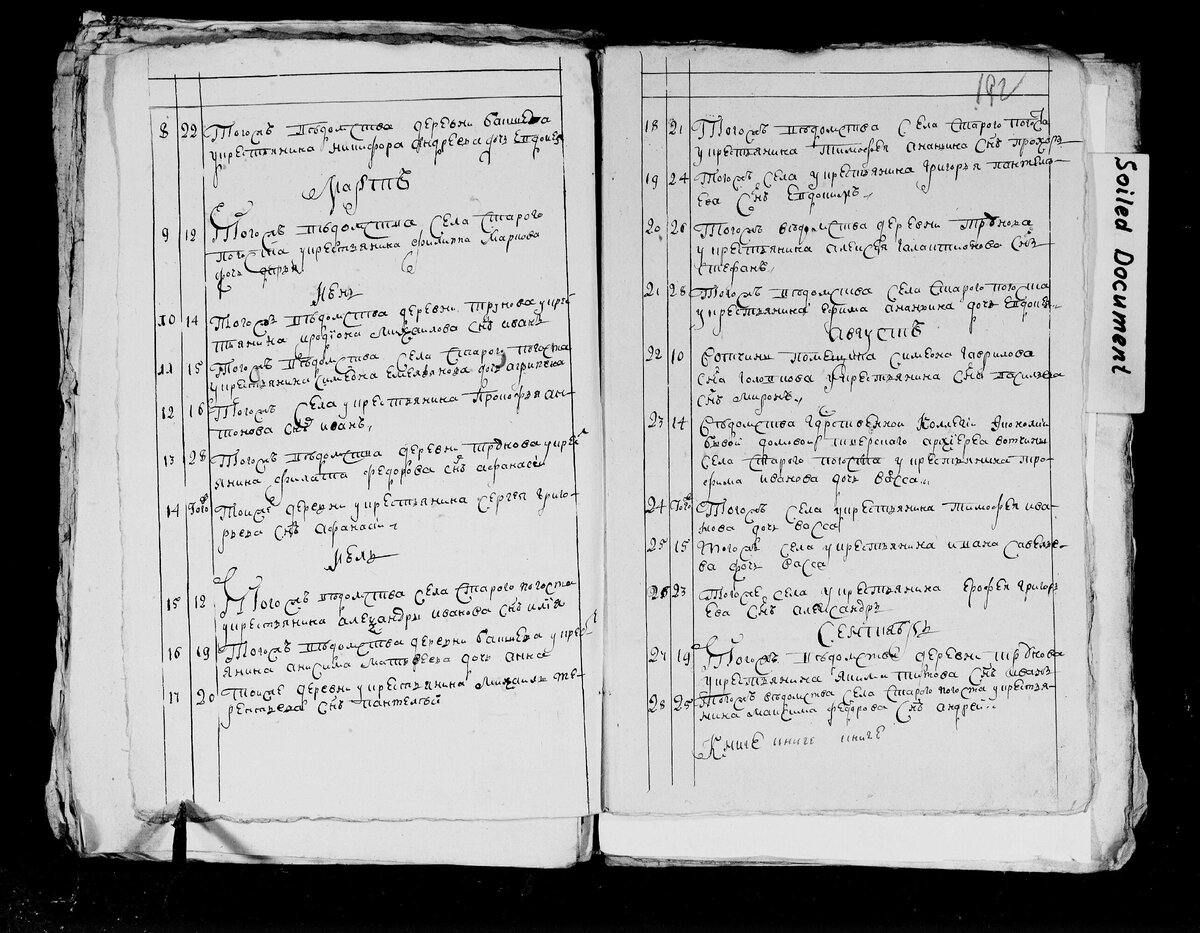 8 22 Тогожъ вѣдомства деревни Башева
у крестьянина Никифора Андреева дочь Евдокея
Мартъ
9 12 Тогожъ вѣдомства села Старого
погоста у крестьянина Филиппа Маркова
дочь Дарья
Июнь
10 14 Тогожъ вѣдомства деревни Трунова у кре
стьянина Иродиона Михаилова снъ Иванъ
11 15 Тогожъ вѣдомства села Старого погоста
у крестьянина Симеона Емельянова дочь Агрипена
12 16 Тогожъ села у крестьянина Прокофья Ан
тонова снъ Иванъ
13 28 Тогожъ вѣдомства деревни Трунова у крестъ
янина Филипа Федорова снъ Афанасій
14 Того Тоижъ деревни у крестьянина Сергея Григо
рьева снъ Афанасій
Июль
15 12 Тогожъ вѣдомства села Старого погоста
у крестьянина Алеѯандры Иванова снъ Илія
16 19 Тогожъ вѣдомства деревни Башева у крест
янина Анисима Матвѣева дочь Анна
17 20 Тоиже деревни у крестьянина Михаилы Те
рентьева снъ Пантелѣй
192
18 21 Тогожъ вѣдомства села Старого погоста
у крестьянина Тимофея Ананина снъ Прохоръ
19 24 Тогожъ села у крестьянина Григорья Пантелѣ
ева снъ Евдокимъ
20 26 Тогожъ вѣдомства деревни Трунова
у крестьянина Алексѣя Галактионова снъ
Стефанъ
21 28 Тогожъ вѣдомства села Старого погоста
у крестьянина Ефима Ананина дочь Евдокея
Августъ
22 10 Вотчины помещика Симеона Гаврилова
сна Головцова у крестьянина снъ Василева
снъ Миронъ
23 14 Вѣдомства Гдрственной Коллегіи Економіи
бывой домовой тверского архіерея вотчины
села Старого погоста у крестьянина Тро
фима Иванова дочь Васса
24 Того Тогожъ села у крестьянина Тимофея Ива
нова дочь Васса
25 15 Тогожъ села у крестьянина Ивана Савелье
ва дочь Васса
26 23 Тогоже села у крестьянина Ерофея Григорь
ева снъ Александръ
Сентябрь
27 19 Тогожъ вѣдомства деревни Трунова
у крестьянина Якима Титова снъ Иванъ
28 25 Тогожъ вѣдомства села Старого погоста у крестья
нина Максима Федорова снъ Андрей
Книге книге книге
Soiled Document